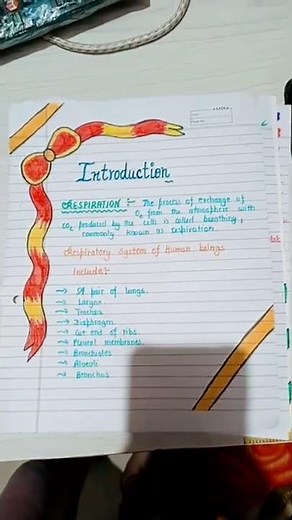 Introduction
RESPIRATION :- The process of exchange of
O₂ from the atmosphere with
CO₂ produced by the cells is called breathing,
commonly known as respiration.
Respiratory System of Human beings
include:-
→ A pair of lungs.
→ Larynx.
→ Trachea
→ Diaphragm
→ Cut end of ribs.
→ Pleural membranes.
→ Bronchioles
→ Alveoli
→ Bronchus